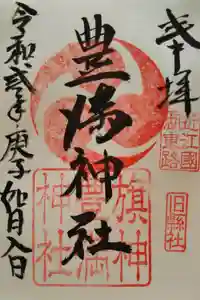 奉拝
近江國
湖東路
旧縣社
豊満神社
旗神
豊満
神社
令和弐年庚子如月八日